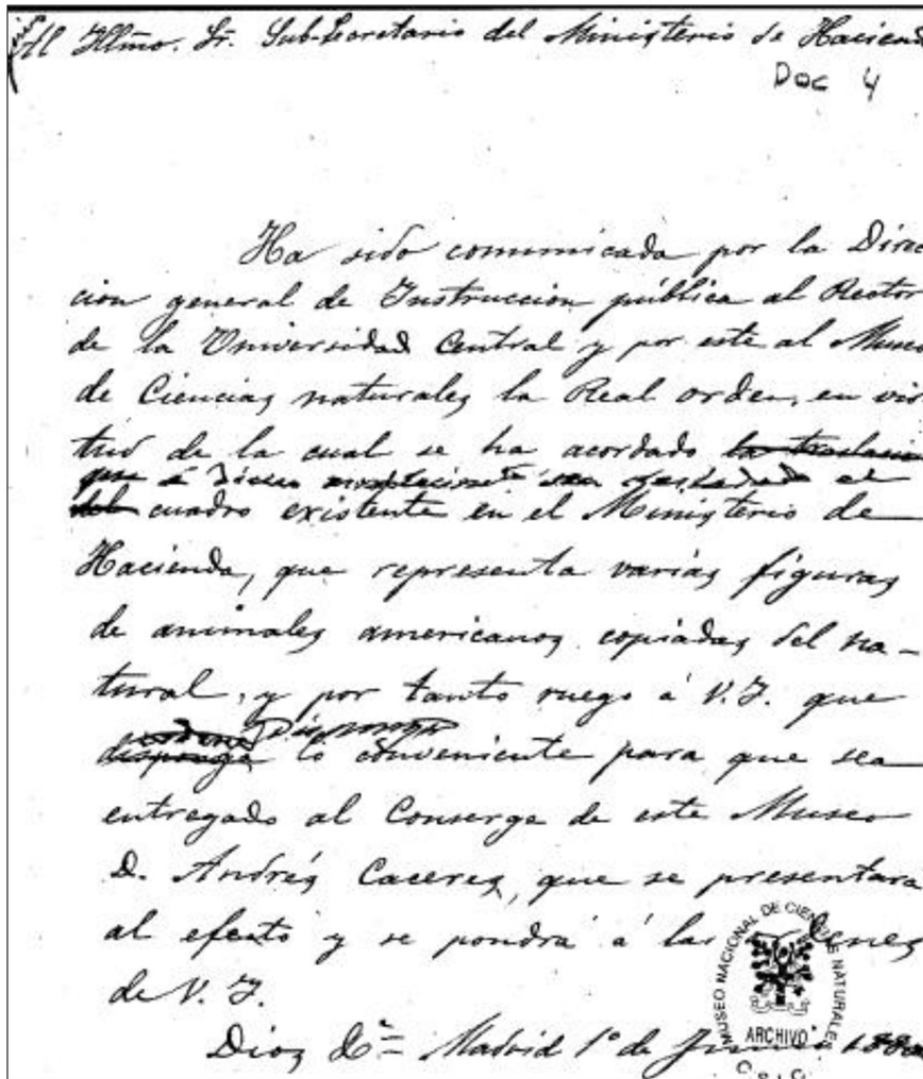 Al Illmo. Sr. Sub-Secretario del Ministerio de Haciend
Doc 4
Ha sido comunicada por la Direc
cion general de Instruccion pública al Rector
de la Universidad Central y por este al Museo
de Ciencias naturales la Real orden, en vir
tud de la cual se ha acordado la traslacion
que á dicho establecimto. sea trasladado el
del cuadro existente en el Ministerio de
Hacienda, que representa varias figuras
de animales americanos copiadas del na-
tural, y por tanto ruego á V.I. que
disponga
disponga lo conveniente para que sea
entregado al Conserge de este Museo
D. Andrés Caceres, que se presentara
al efecto y se pondrá á las ordenes
de V. I.
Dios &ª = Madrid 1º de Junio
MUSEO NACIONAL DE CIENCIAS NATURALES
ARCHIVO
C.S.I.C.